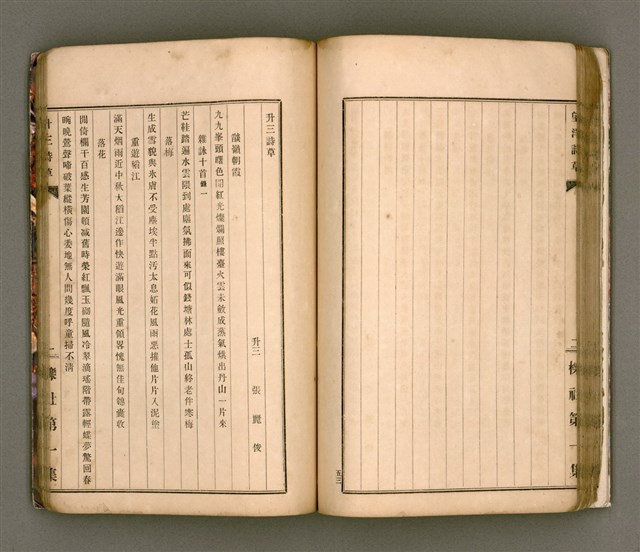 望洋詩草
二 櫟社第一集
五三
升三詩草
升三 張麗俊
鐵嶺朝霞
九九峯頭曙色開紅光燦爛照樓臺火雲未斂成蒸氣烘出丹山一片來
雜詠十首錄一
芒鞋踏遍水雲隈到處塵氣拂面來可似錢塘林處士孤山終老伴寒梅
落梅
生成雪貌與氷膚不受塵埃半點汚太息妬花風雨惡摧他片片入泥塗
重遊稻江
滿天烟雨近中秋大稻江邊作快遊滿眼風光重領畧愧無佳句錦囊收
落花
閒倚欄干百感生芳園頓減舊時榮紅飄玉砌隨風冷翠滴瑤階帶露輕蝶夢驚回春
晼晚鶯聲啼破葉縱橫傷心委地無人問幾度呼童掃不淸
升三詩草
一 櫟社第一集